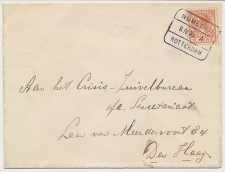 ROTTERDAM
Aan het Crisis-Zuivelbureau
afd. Secretariaat
Laan van Meerdervoort 84
Den Haag